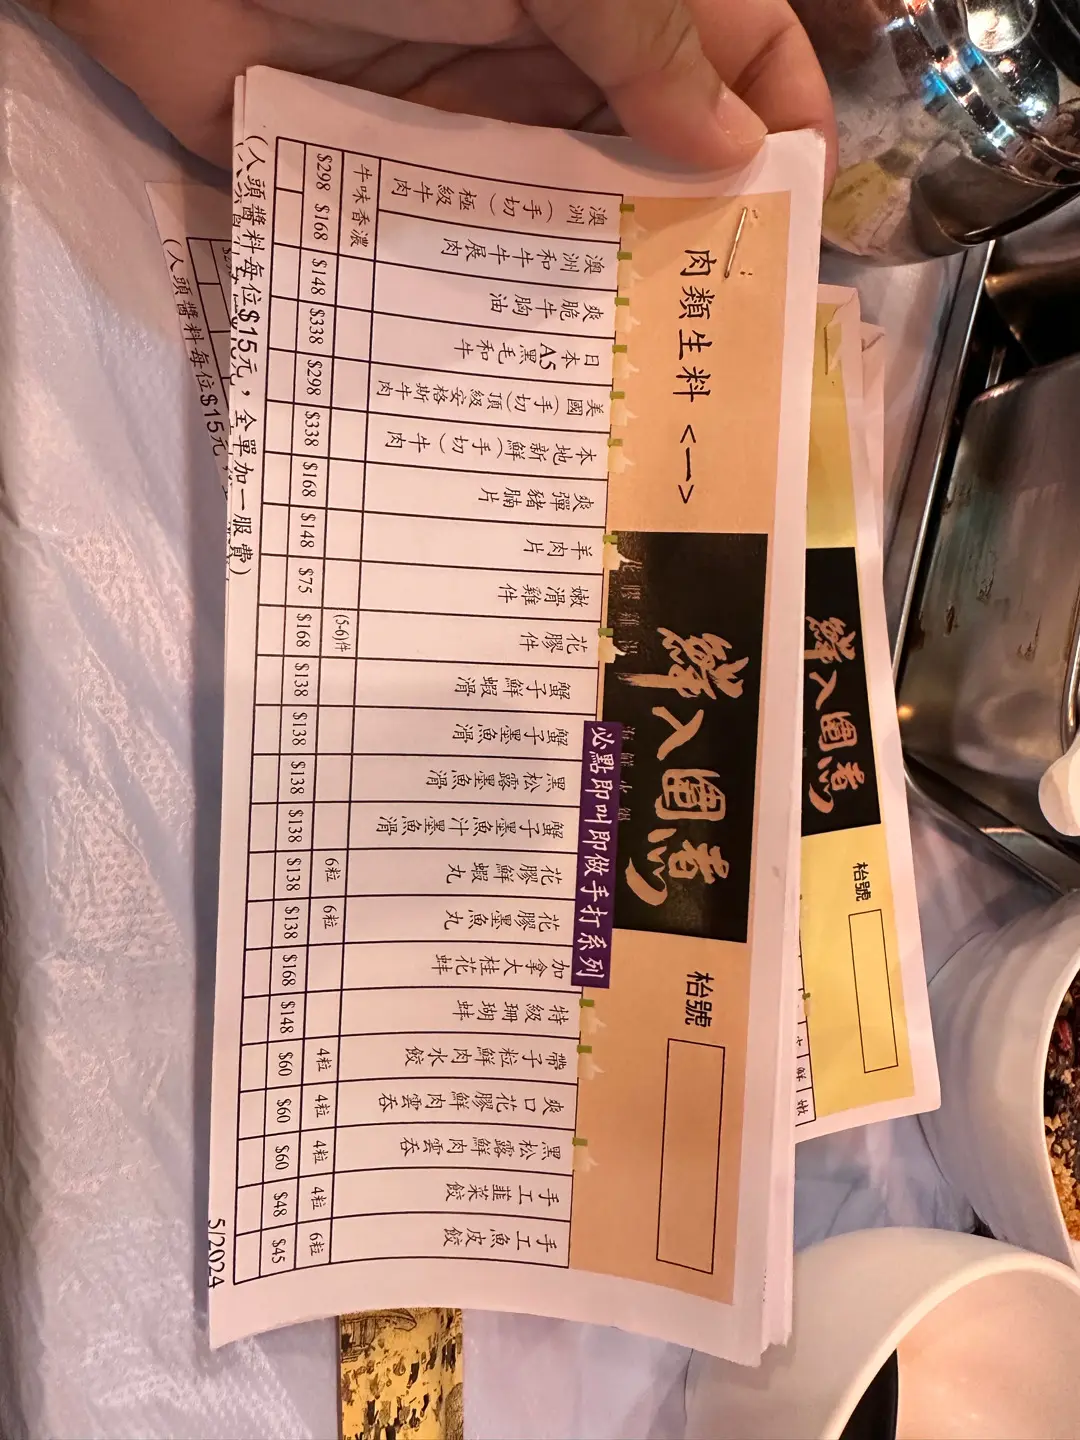 肉類生料 <一>
鮮入圍煮
枱號
必點即叫即做手打系列
澳洲(手切)極級牛肉 牛味香濃 $298
澳洲和牛牛展肉 $168
爽脆牛胸油 $148
日本A5黑毛和牛 $338
美國(手切)頂級安格斯牛肉 $298
本地新鮮(手切)牛肉 $338
爽彈豬腩片 $168
羊肉片 $148
嫩滑雞件 $75
花膠件 (5-6)件 $168
蟹子鮮蝦滑 $138
蟹子墨魚滑 $138
黑松露墨魚滑 $138
蟹子墨魚汁墨魚滑 $138
花膠鮮蝦丸 6粒 $138
花膠墨魚丸 6粒 $138
加拿大桂花蚌 $168
特級珊瑚蚌 $148
帶子粒鮮肉水餃 4粒 $60
爽口花膠鮮肉雲吞 4粒 $60
黑松露鮮肉雲吞 4粒 $60
手工韮菜餃 4粒 $48
手工魚皮餃 6粒 $45
(人頭醬料每位$15元，全單加一服費)
5/2024
鮮入圍煮
枱號
(人頭醬料每位$15元